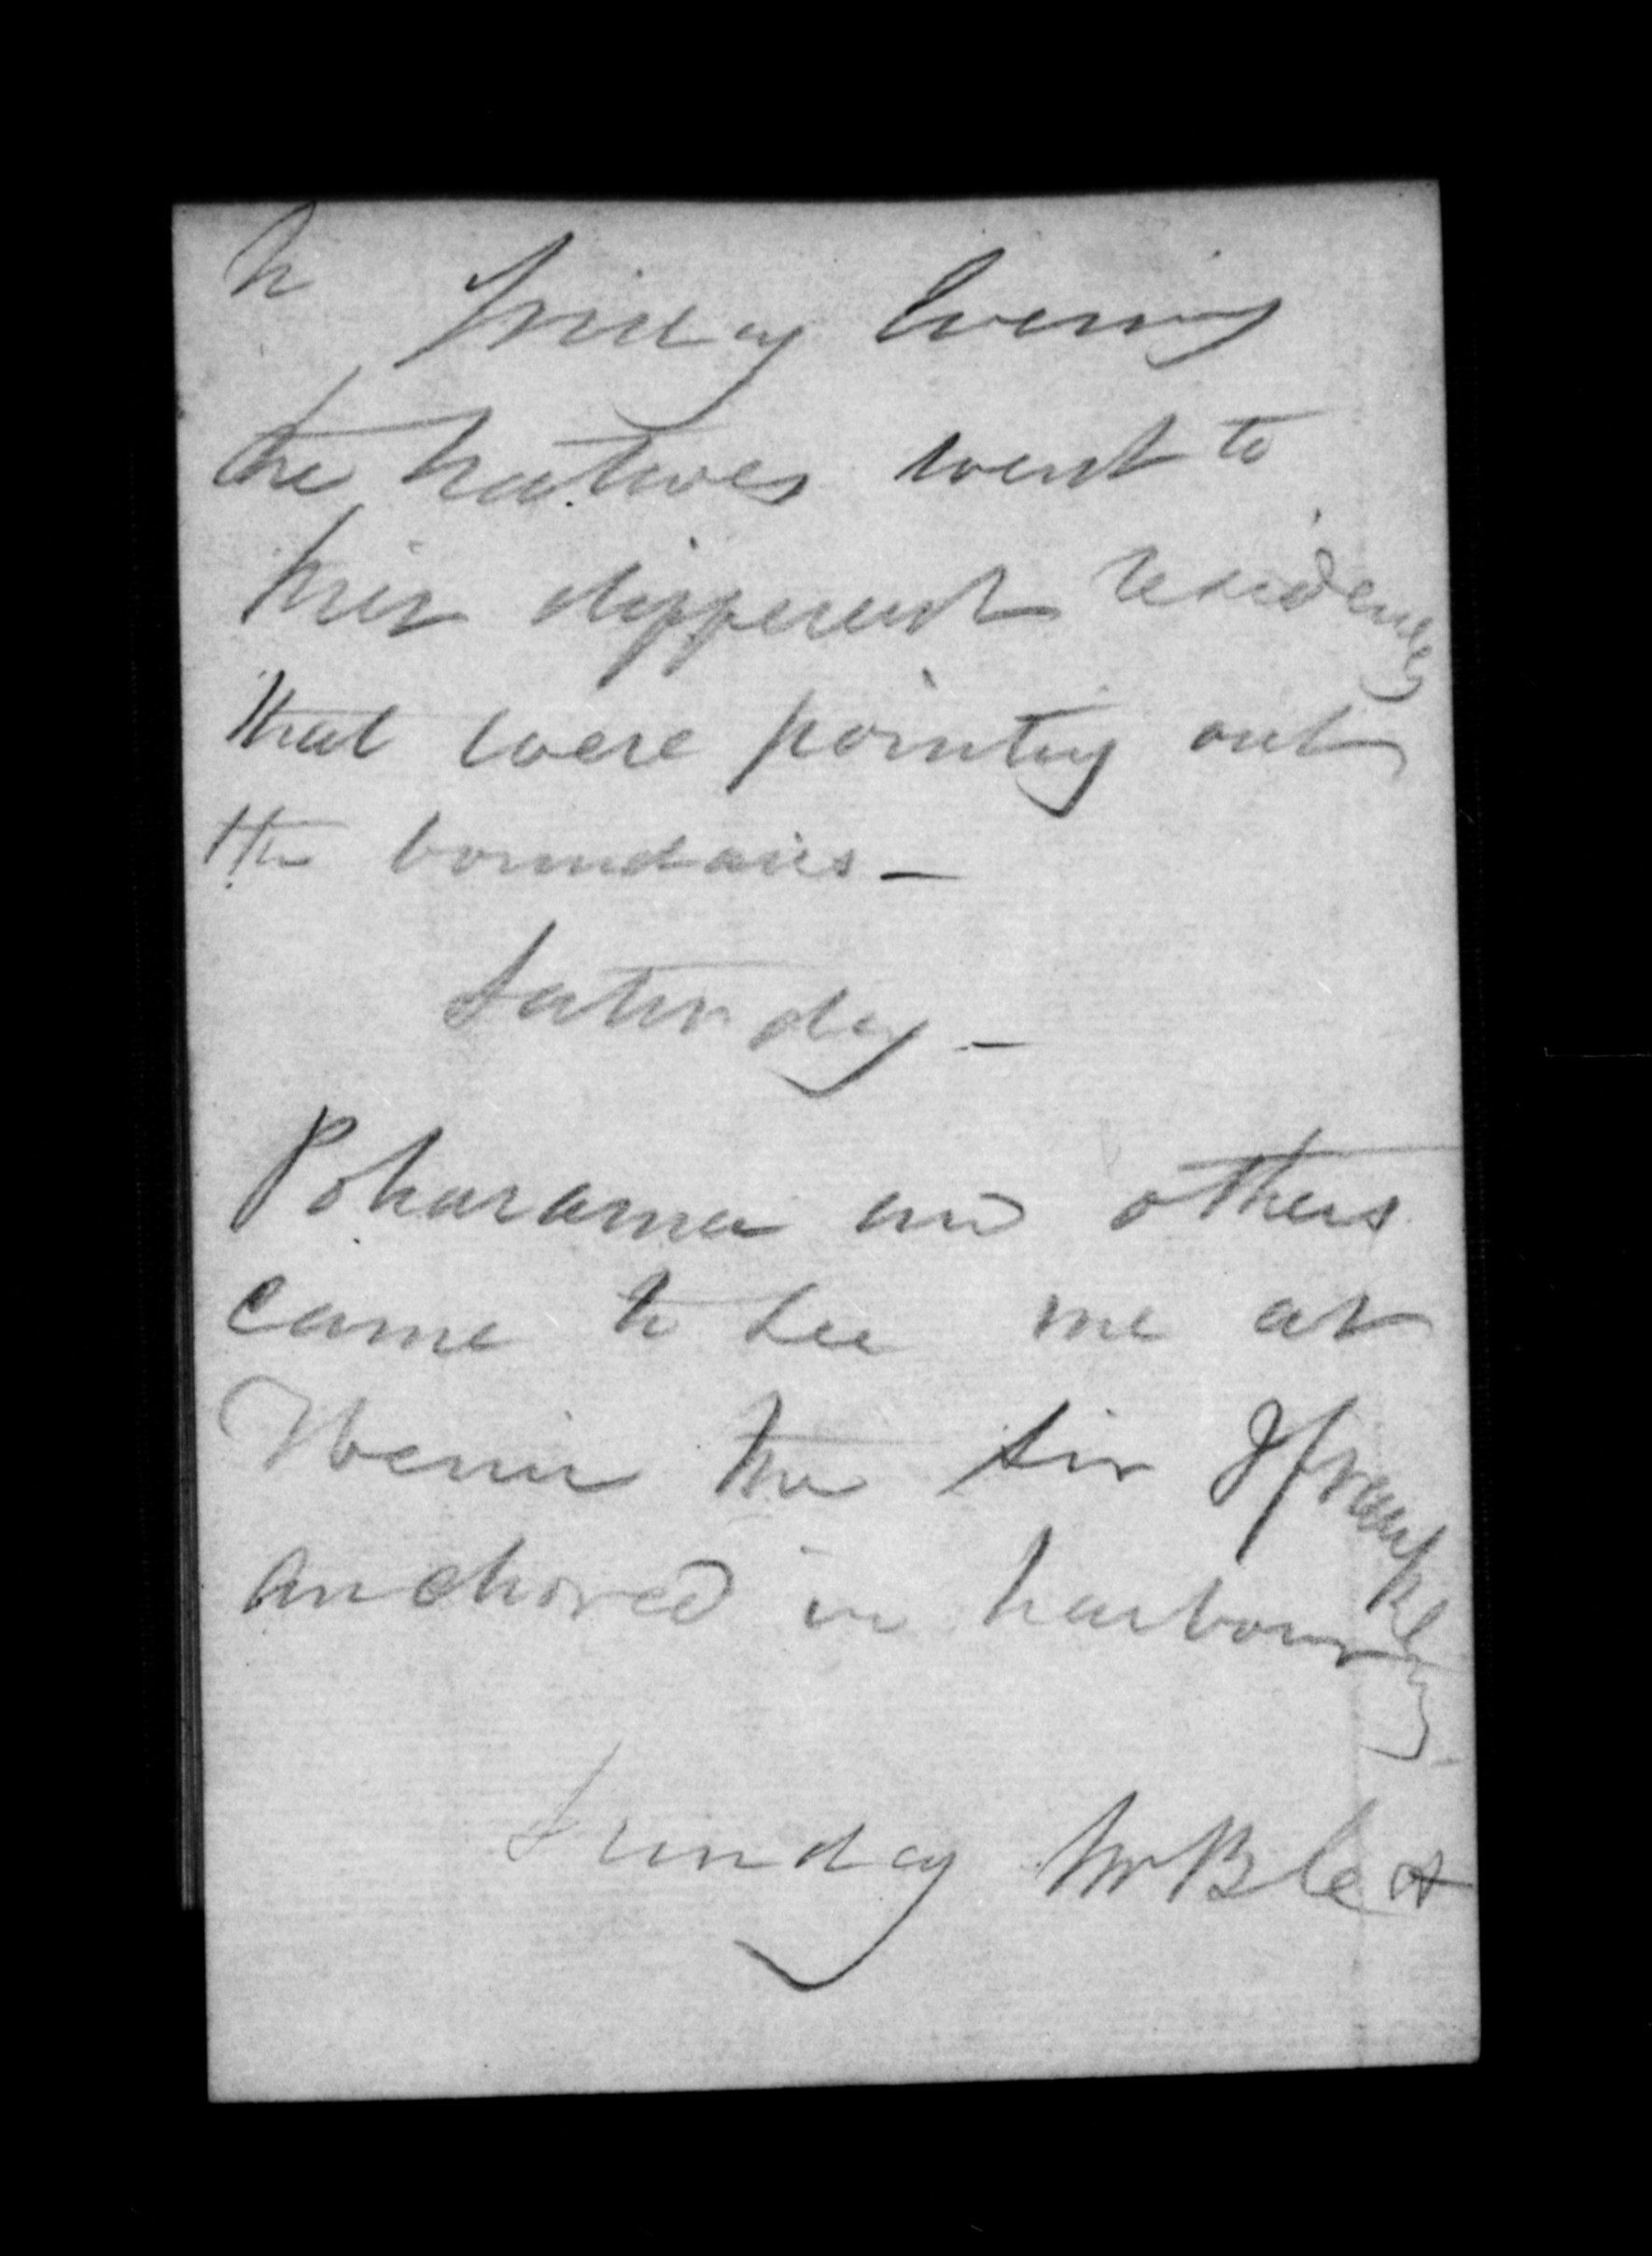 Friday Evening
the natives went to
their different residences
that were pointing out
the boundaries —
Saturday —
Poharama and others
came to see me at
the Sir J Franklin
anchored in harbour
Sunday Mr B &